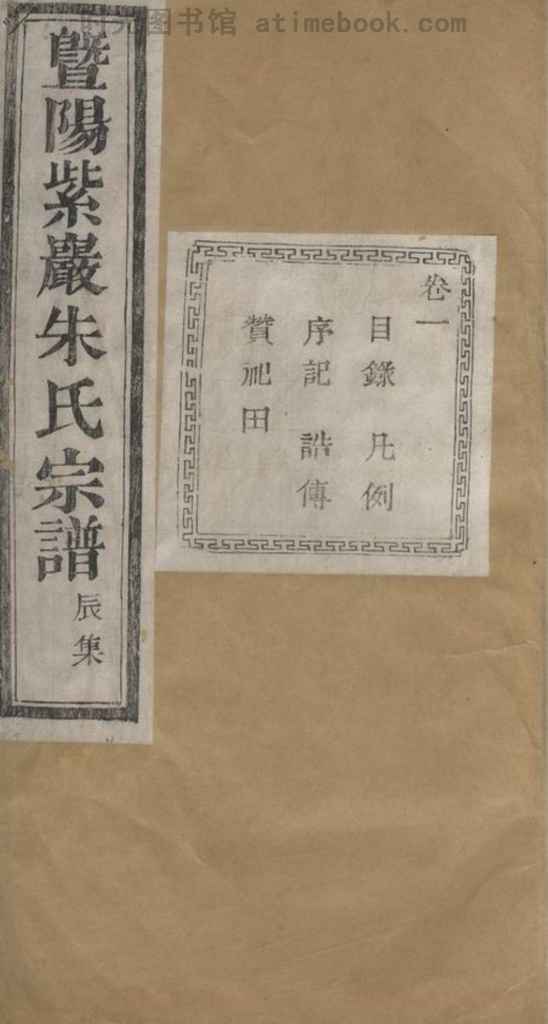 图书馆 atimebook.com
暨陽紫巖朱氏宗譜 辰集
卷一
目錄 凡例
序記 誥傳
贊祀田